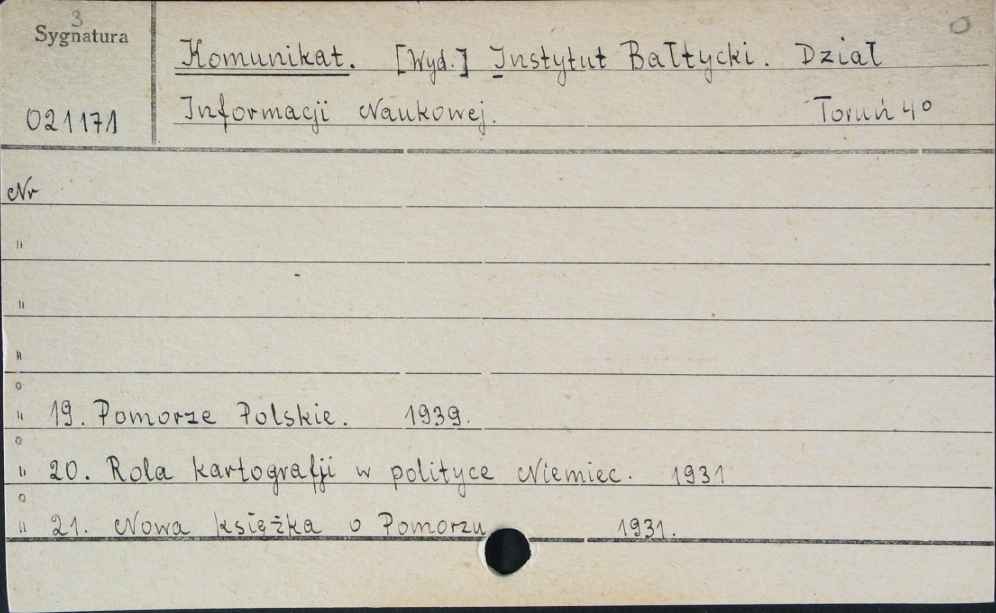 3
Sygnatura
021171
Komunikat. [Wyd.] Instytut Bałtycki. Dział
Informacji Naukowej. Toruń 4°
Nr
"
"
"
" 19. Pomorze Polskie. 1939.
" 20. Rola kartografji w polityce Niemiec. 1931
" 21. Nowa książka o Pomorzu 1931.